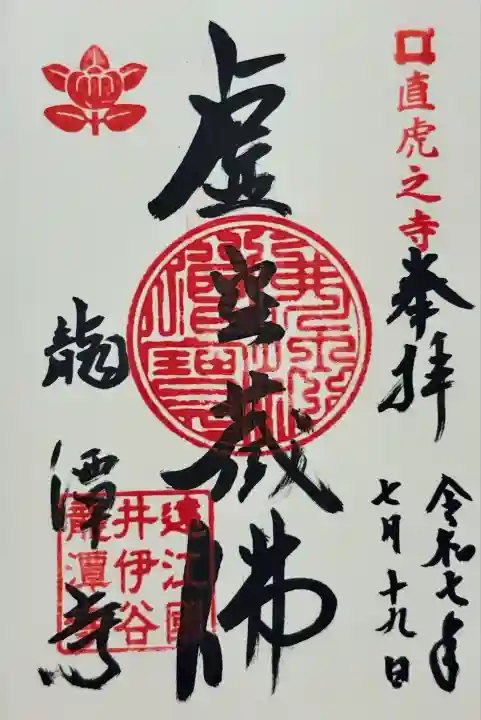 直虎之寺
奉拝
令和七年
七月十九日
虚空蔵佛
遠江國
井伊谷
龍潭寺
龍潭寺